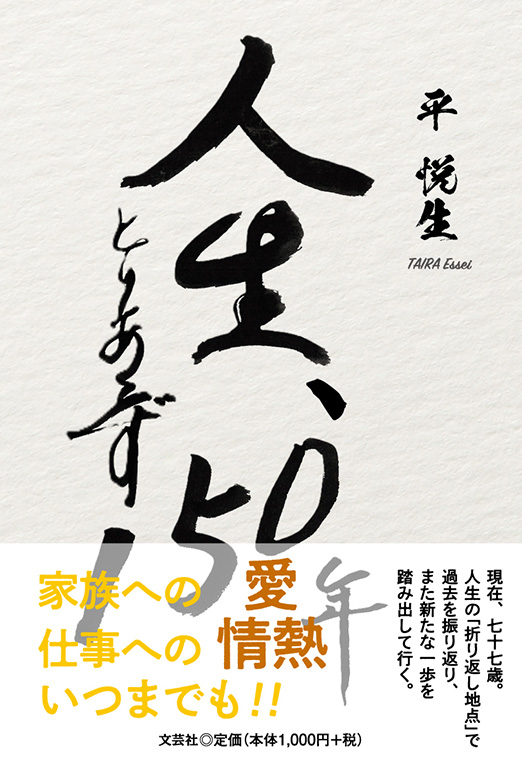 平 悦生
TAIRA Essei
人生、
とりあえず
150年
現在、七十七歳。
人生の「折り返し地点」で
過去を振り返り、
また新たな一歩を
踏み出して行く。
家族への愛
仕事への情熱
いつまでも!!
文芸社◎定価(本体1,000円+税)